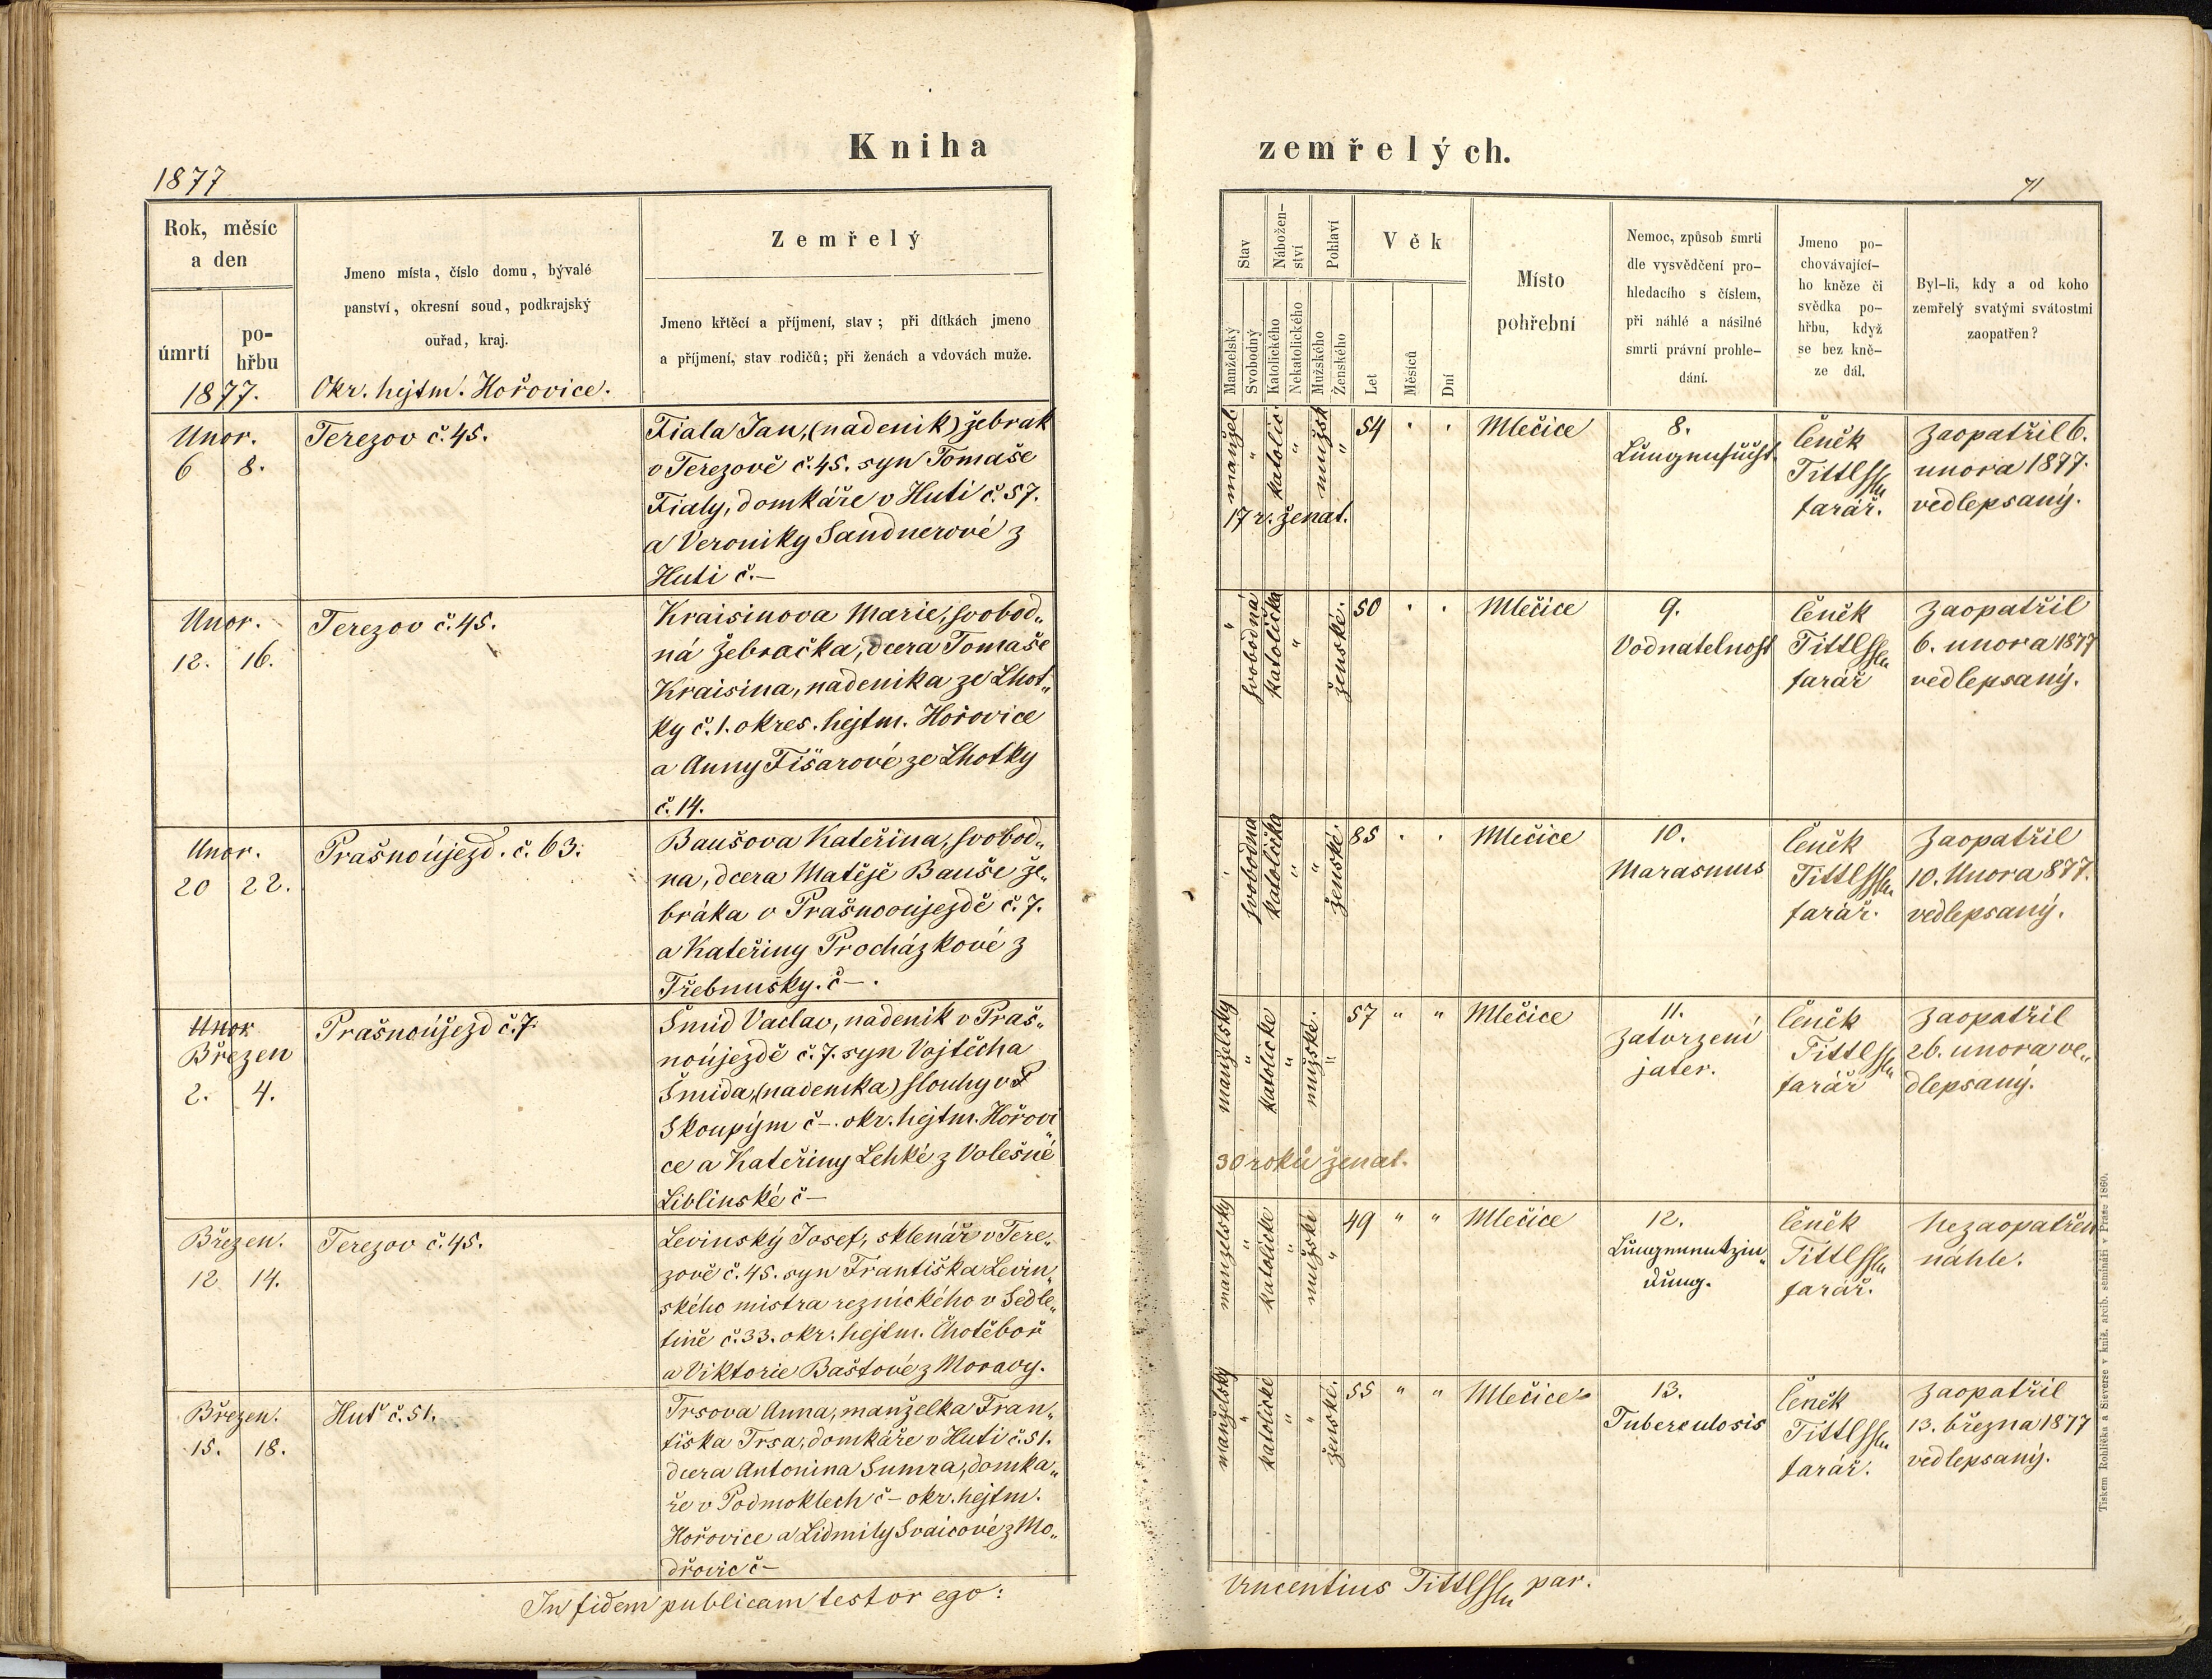 Kniha
1877
Rok, měsíc
a den
úmrtí
po-
hřbu
1877.
Jmeno místa, číslo domu, bývalé
panství, okresní soud, podkrajský
ouřad, kraj.
Okr. hejtm. Hořovice.
Zemřelý
Jmeno křtěcí a příjmení, stav; při dítkách jmeno
a příjmení, stav rodičů; při ženách a vdovách muže.
Unor.
6 8.
Terezov č. 45.
Fiala Jan, (nadenik) žebrak
v Terezově č. 45. syn Tomaše
Fialy, domkáře v Huti č. 57.
a Veroniky Sandnerové z
Huti č.–
Unor.
12. 16.
Terezov č. 45.
Kraisinova Marie, svobod„
ná žebračka, dcera Tomaše
Kraisina, nadenika ze Lhot„
ky č. 1. okres. hejtm. Hořovice
a Anny Fišarové ze Lhotky
č. 14.
Unor.
20 22.
Prašnoújezd. č. 63.
Baušova Kateřina, svobod„
na, dcera Matěje Bauše že„
bráka v Prašnooújezdě č. 7.
a Kateřiny Procházkové z
Třebnušky. č–.
Unor
Březen
2. 4.
Prašnoújezd č. 7.
Šmid Vaclav, nadenik v Praš„
noújezdě č. 7. syn Vojtěcha
Šmida, (nadenika) slouhy v
Skoupým č–. okr. hejtm. Hořovi„
ce a Kateřiny Lehké z Volešné
Liblinské č–
Březen.
12 14.
Terezov č. 45.
Levinský Josef, sklenář v Tere„
zově č. 45. syn Františka Levin„
ského mistra reznického v Sedle„
tině č. 33. okr. hejtm. Chotěboř
a Viktorie Baštové z Moravy.
Březen.
15. 18.
Huť č. 51.
Trsova Anna, manželka Fran„
tiška Trsa, domkáře v Huti č. 51.
dcera Antonina Sumra, domka„
ře v Podmoklech č– okr. hejtm.
Hořovice a Lidmily Svaicové z Mo„
dřovic č–
In fidem publicam testor ego:
zemřelých.
71
Stav
Nábožen-
ství
Pohlaví
Věk
Manželský
Svobodný
Katolického
Nekatolického
Mužského
Ženského
Let
Měsíců
Dní
Místo
pohřební
Nemoc, způsob smrti
dle vysvědčení pro-
hledacího s číslem,
při náhlé a násilné
smrti právní prohle-
dání.
Jmeno po-
chovávající-
ho kněze či
svědka po-
hřbu, když
se bez kně-
ze dál.
Byl-li, kdy a od koho
zemřelý svatými svátostmi
zaopatřen?
manžel. " katolic. " mužsk "
54 . .
17 r. ženat.
Mlečice
8.
Lungensucht.
Čeněk
farář.
Zaopatřil 6.
unora 1877.
vedlepsaný.
" svobodná katolička " ženské.
50 . .
Mlečice
9.
Vodnatelnost
Čeněk
farář
Zaopatřil
6. unora 1877
vedlepsaný.
" svobodna katolička " " ženské.
85 . .
Mlečice
10.
Marasmus
Čeněk
farář.
Zaopatřil
10. Unora 877.
vedlepsaný.
manželský " katolické " mužské. "
57 " "
30 roků ženat.
Mlečice
11.
Zatvrzení
jater.
Čeněk
farář
Zaopatřil
26. unora ve„
dlepsaný.
manželský " katolické " mužské "
49 " "
Mlečice
12.
Lungenentzün„
dung.
Čeněk
farář.
Nezaopatřen
náhle.
manželský " katolické " " ženské.
55 " "
Mlečice
13.
Tuberculosis
Čeněk
farář.
Zaopatřil
13. března 1877
vedlepsaný.
Vincentius par.
Tiskem Rohlíčka a Sieverse v kníž. arcib. semináři v Praze 1860.